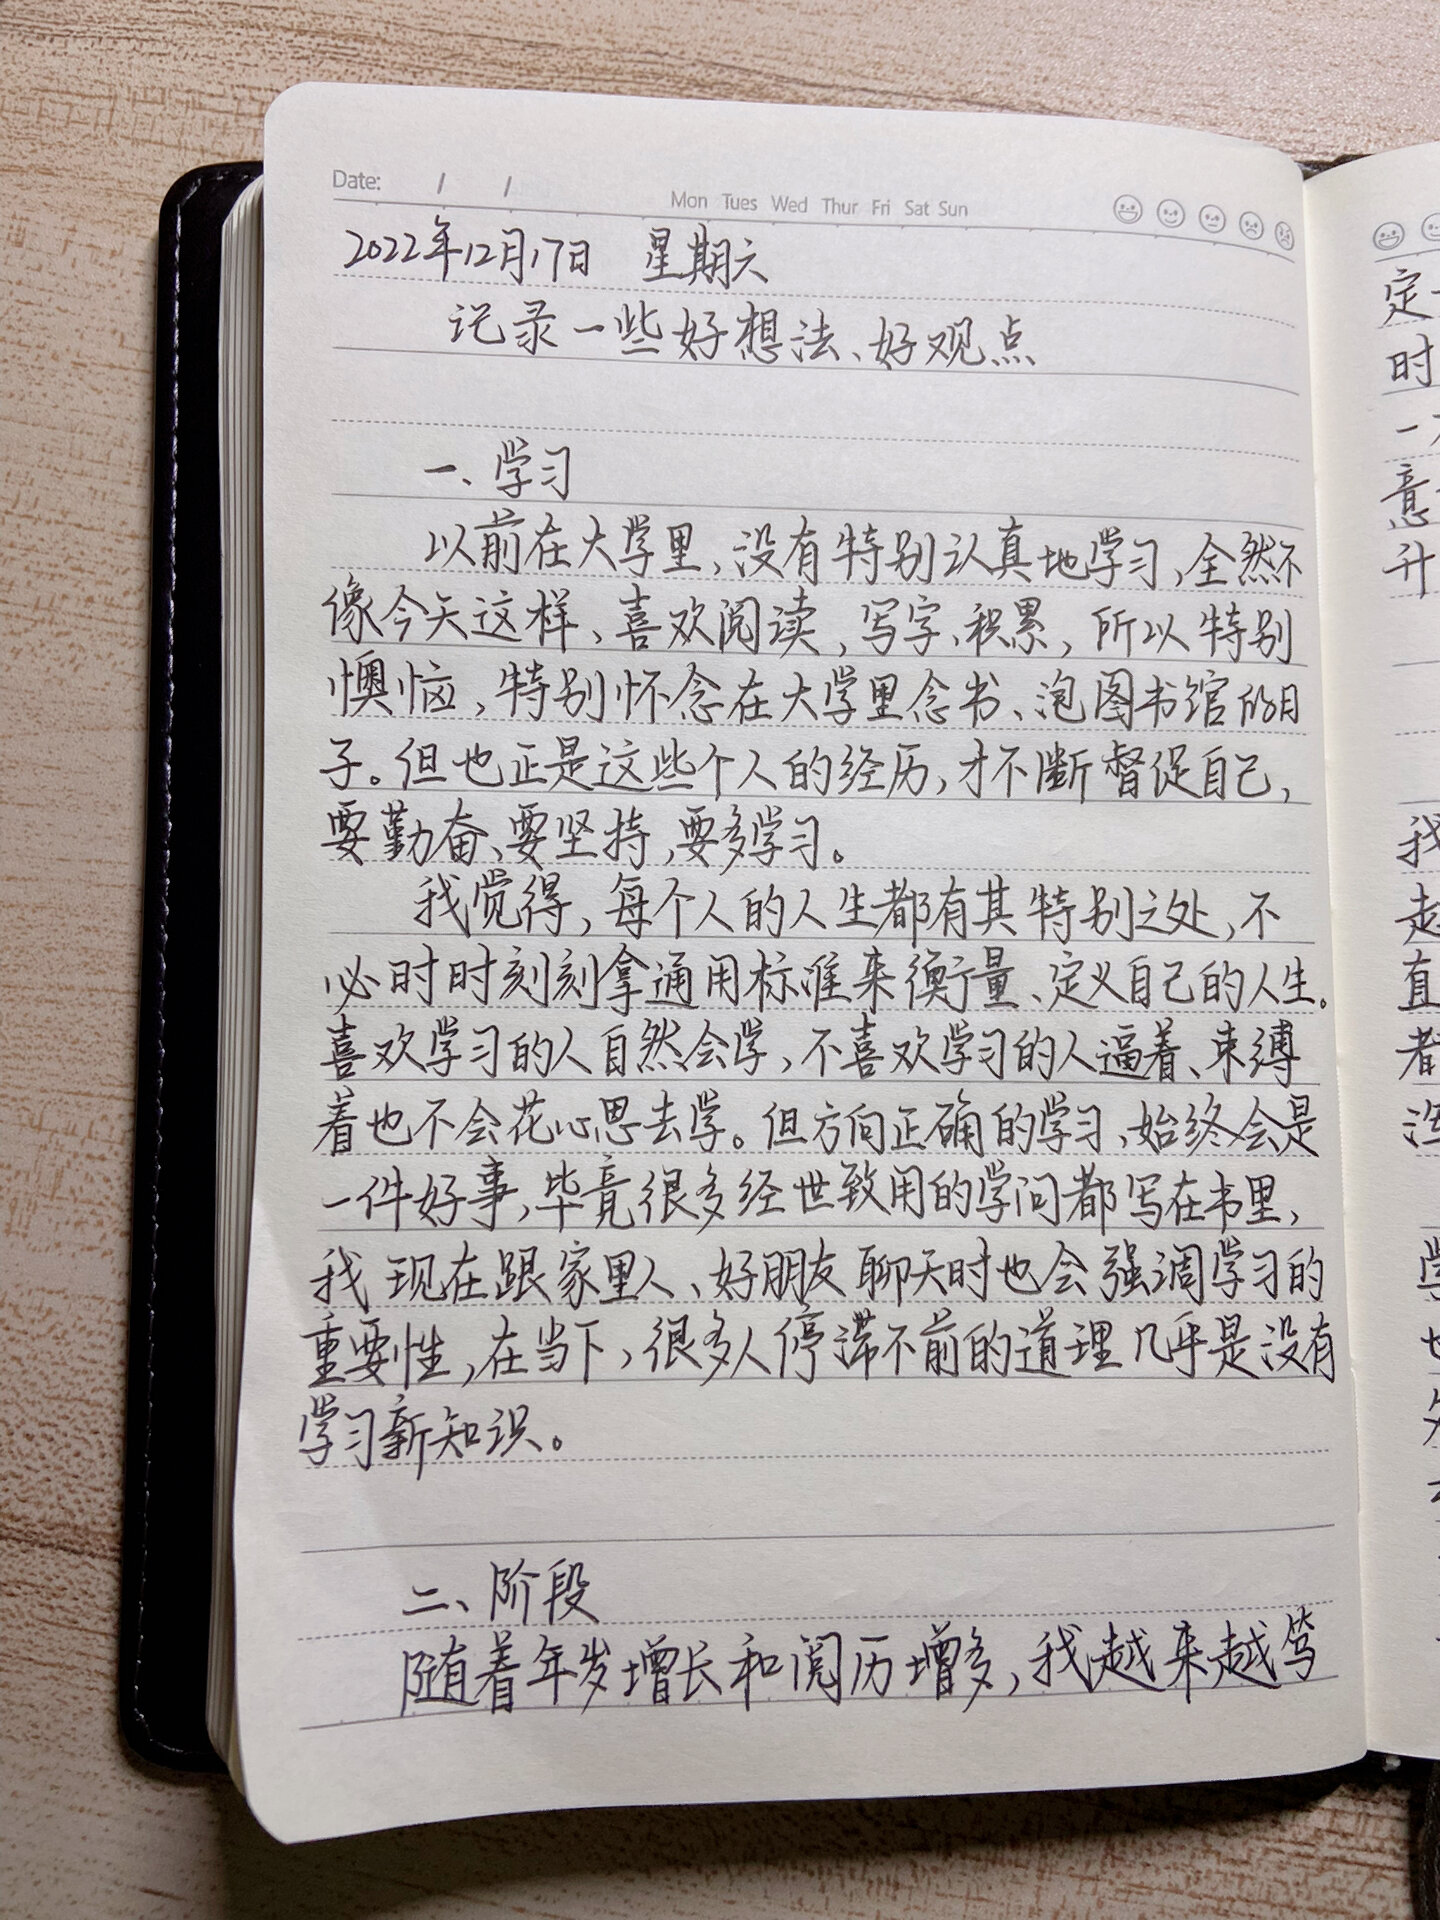 Date: / /
Mon Tues Wed Thur Fri Sat Sun
2022年12月17日 星期六
记录一些好想法、好观点
一、学习
以前在大学里,没有特别认真地学习,全然不
像今天这样、喜欢阅读,写字、积累,所以特别
懊恼,特别怀念在大学里念书、泡图书馆的日
子。但也正是这些个人的经历,才不断督促自己,
要勤奋、要坚持,要多学习。
我觉得,每个人的人生都有其特别之处,不
必时时刻刻拿通用标准来衡量、定义自己的人生。
喜欢学习的人自然会学,不喜欢学习的人逼着、束缚
着也不会花心思去学。但方向正确的学习,始终会是
一件好事,毕竟很多经世致用的学问都写在书里,
我现在跟家里人、好朋友聊天时也会强调学习的
重要性,在当下,很多人停滞不前的道理几乎是没有
学习新知识。
二、阶段
随着年岁增长和阅历增多,我越来越笃
定
时
一
意
升
我
起
直
者
学
也